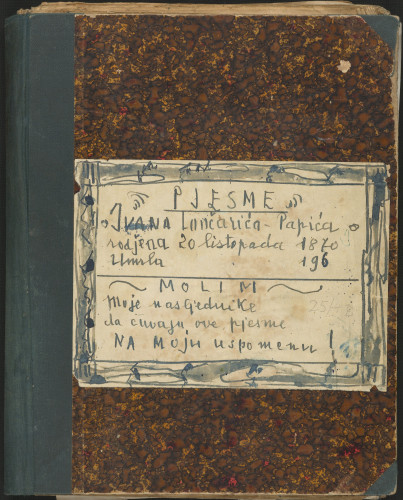 PJESME
IVANA Lončarića-Papića
rodjena 20 listopada 1870
Umrla 196
MOLIM
Moje nasljednike
da čuvaju ove pjesme
NA MOJU uspomenu!